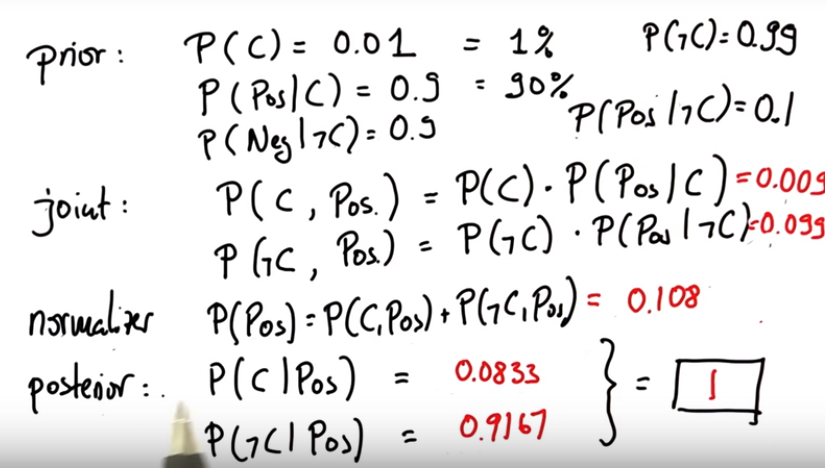 prior: P(C) = 0.01 = 1% P(¬C)=0.99
P(Pos|C) = 0.9 = 90% P(Pos|¬C)=0.1
P(Neg|¬C)=0.9
joint: P(C, Pos.) = P(C)·P(Pos|C)=0.009
P(¬C, Pos.) = P(¬C)·P(Pos|¬C)=0.099
normalizer P(Pos)=P(C,Pos)+P(¬C,Pos)= 0.108
posterior: P(C|Pos) = 0.0833 } = 1
P(¬C|Pos) = 0.9167